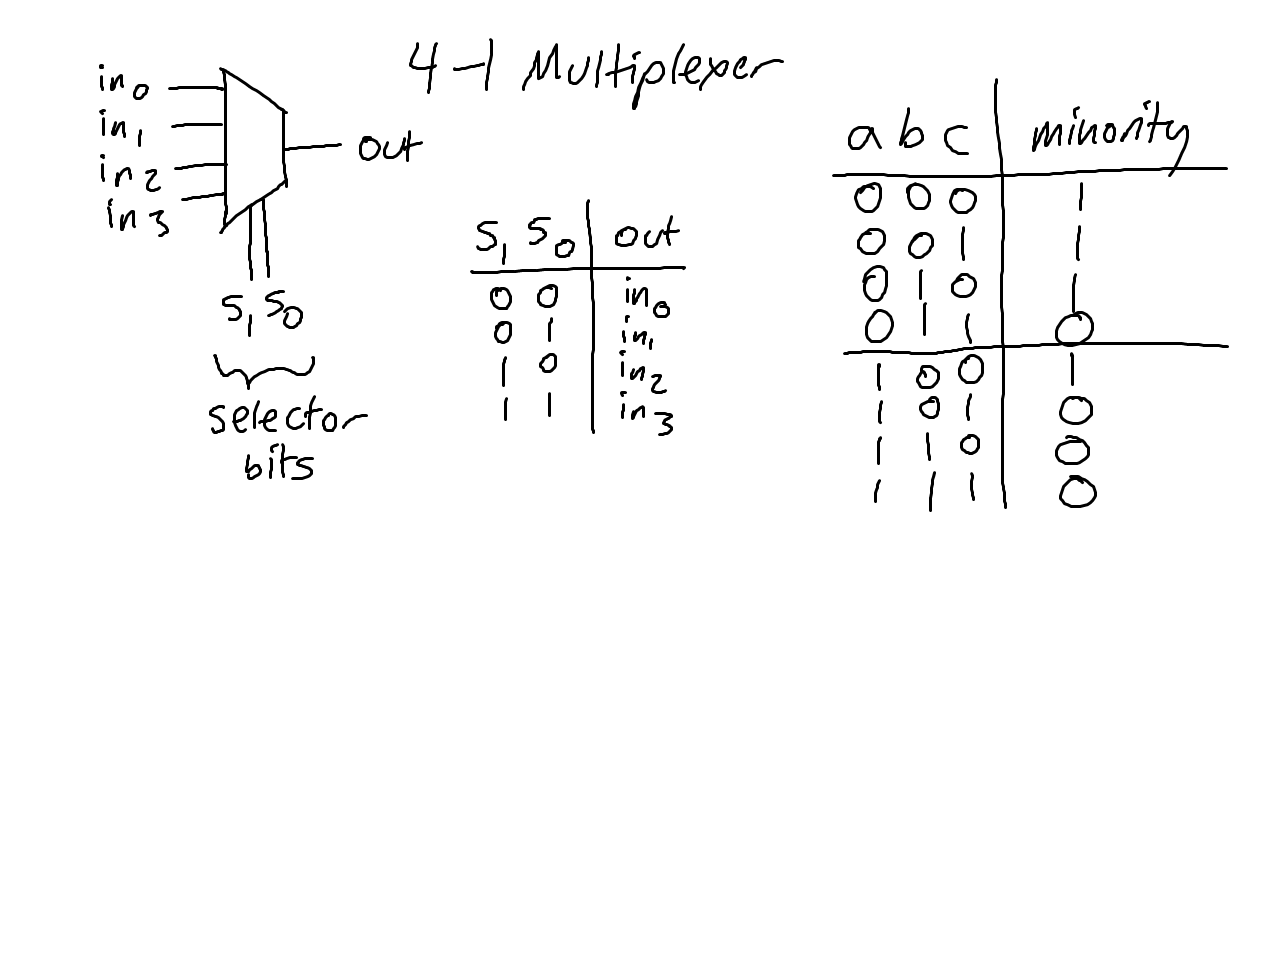 4-1 Multiplexer
in0
in1
in2
in3
out
S1 S0
selector
bits
S1 S0 out
0 0 in0
0 1 in1
1 0 in2
1 1 in3
a b c minority
0 0 0 1
0 0 1 1
0 1 0 1
0 1 1 0
1 0 0 1
1 0 1 0
1 1 0 0
1 1 1 0